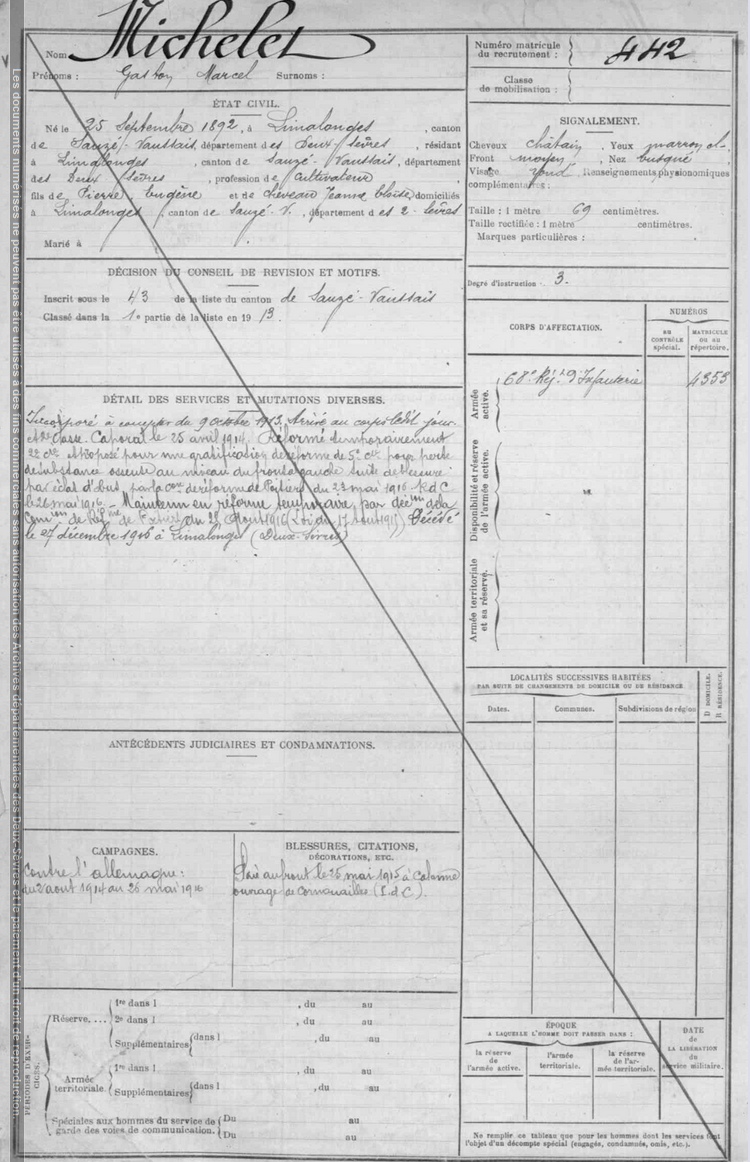 Michelet
Nom
Prénoms : Gaston Marcel Surnoms :
Numéro matricule du recrutement : 442
Classe de mobilisation :
ÉTAT CIVIL.
Né le 25 Septembre 1892, à Limalonges, canton
de Sauzé-Vaussais, département des Deux Sèvres, résidant
à Limalonges, canton de Sauzé-Vaussais, département
des Deux Sèvres, profession de Cultivateur
fils de Pierre Eugène et de Cheveau Jeanne domiciliés
à Limalonges, canton de Sauzé-V., département des 2-Sèvres
Marié à
SIGNALEMENT.
Cheveux châtain, Yeux marron
Front moyen, Nez busqué,
Visage rond, Renseignements physionomiques
complémentaires :
Taille : 1 mètre 69 centimètres.
Taille rectifiée : 1 mètre centimètres.
Marques particulières :
DÉCISION DU CONSEIL DE REVISION ET MOTIFS.
Inscrit sous le 43 de la liste du canton de Sauzé-Vaussais
Classé dans la 1e partie de la liste en 1913.
Degré d'instruction : 3.
CORPS D'AFFECTATION.
NUMÉROS
AU CONTRÔLE spécial.
MATRICULE OU AU répertoire.
Armée active.
68e Régt d'Infanterie 4353
Disponibilité et réserve de l'armée active.
Armée territoriale et sa réserve.
DÉTAIL DES SERVICES ET MUTATIONS DIVERSES.
Incorporé à compter du 9 octobre 1913, Arrivé au corps ledit jour
et 2e Classe. Caporal le 25 avril 1914. Réformé temporairement
2e cie et proposé pour une gratification de réforme de 5e cie pour perte
de substance osseuse au niveau du frontal gauche suite de blessure
par éclat d'obus, par la Con de réforme de Poitiers du 23 mai 1916. R.d.C
le 26 mai 1916. Maintenu en réforme temporaire par décon de la
Comon de Réfme de Poitiers du 28 Aout 1916 (Loi du 17 aout 1915) Décédé
le 27 décembre 1916 à Limalonges (Deux-Sèvres)
LOCALITÉS SUCCESSIVES HABITÉES
PAR SUITE DE CHANGEMENTS DE DOMICILE OU DE RÉSIDENCE
Dates. Communes. Subdivisions de région D DOMICILE. R RÉSIDENCE.
ANTÉCÉDENTS JUDICIAIRES ET CONDAMNATIONS.
CAMPAGNES.
Contre l'allemagne :
du 2 aout 1914 au 26 mai 1916
BLESSURES, CITATIONS,
DÉCORATIONS, ETC.
au front le 25 mai 1915 à Calonne
ouvrage de Cornouailles (E.d.C).
PÉRIODES D'EXERCICES.
Réserve.... 1re dans l , du au
2e dans l , du au
Supplémentaires dans l , du au
Armée territoriale 1re dans l , du au
Supplémentaires dans l , du au
Spéciales aux hommes du service de garde des voies de communication. Du au
Du au
ÉPOQUE
A LAQUELLE L'HOMME DOIT PASSER DANS :
la réserve de l'armée active.
l'armée territoriale.
la réserve de l'armée territoriale.
DATE de LA LIBÉRATION du service militaire.
Ne remplir ce tableau que pour les hommes dont les services font
l'objet d'un décompte spécial (engagés, condamnés, omis, etc.).
Les documents numérisés ne peuvent pas être utilisés à des fins commerciales sans autorisation des Archives départementales des Deux-Sèvres et paiement d'un droit de reproduction.